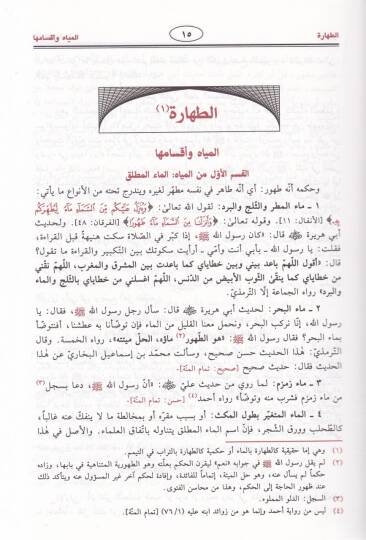 الطهارة ١٥ المياه وأقسامها
الطهارة(١)
المياه وأقسامها
القسم الأوّل من المياه: الماء المطلق
وحكمه أنَّه طهور: أي أنَّه طاهر في نفسه مطهِّر لغيره ويندرج تحته من الأنواع ما يأتي:
١ ـ ماء المطر والثَّلج والبرد: لقول الله تعالىٰ: ﴿وَيُنَزِّلُ عَلَيْكُم مِّنَ السَّمَآءِ مَآءً لِّيُطَهِّرَكُم
بِهِۦ﴾ [الأنفال: ١١]. وقوله تعالىٰ: ﴿وَأَنزَلْنَا مِنَ السَّمَآءِ مَآءً طَهُورًا﴾ [الفرقان: ٤٨]. ولحديث
أبي هريرة ﷺ قال: «كان رسول الله ﷺ، إذا كبّر في الصَّلاة سكت هنيهةً قبل القراءة،
فقلت: يا رسول الله ـ بأبي أنت وأمّي ـ أرأيت سكوتك بين التَّكبير والقراءة ما تقول؟
قال: «أقول اللَّهمّ باعد بيني وبين خطاياي كما باعدت بين المشرق والمغرب، اللَّهمّ نقّني
من خطاياي كما ينقّى الثَّوب الأبيض من الدّنس، اللَّهمّ اغسلني من خطاياي بالثَّلج والماء
والبرد» رواه الجماعة إلّا التِّرمذيّ.
٢ ـ ماء البحر: لحديث أبي هريرة قال: سأل رجل رسول الله ﷺ، فقال: يا
رسول الله، إنَّا نركب البحر، ونحمل معنا القليل من الماء فإن توضَّأنا به عطشنا، أفنتوضّأ
بماء البحر؟ فقال رسول الله ﷺ: «هو الطّهور(٢) ماؤه، الحلّ ميتته». رواه الخمسة. وقال
التِّرمذيّ: هٰذا الحديث حسن صحيح، وسألت محمّد بن إسماعيل البخاريّ عن هٰذا
الحديث فقال: حديث صحيح [صحيح: تمام المنّة].
٣ ـ ماء زمزم: لما روي من حديث عليّ: «أنّ رسول الله ﷺ، دعا بسجل(٣)
من ماء زمزم فشرب منه وتوضّأ» رواه أحمد(٤) [حسن: تمام المنّة].
٤ ـ الماء المتغيِّر بطول المكث: أو بسبب مقرّه أو بمخالطة ما لا ينفكّ عنه غالباً،
كالطّحلب وورق الشّجر، فإنّ اسم الماء المطلق يتناوله باتِّفاق العلماء. والأصل في هٰذا
(١) وهي إما حقيقية كالطهارة بالماء أو حكمية كالطهارة بالتراب في التيمم.
(٢) لم يقل رسول الله ﷺ في جوابه «نعم» ليقرن الحكم بعلته وهو الطهورية المتناهية في بابها، وزاده
حكماً لم يسأل عنه، وهو حل الميتة، إتماماً للفائدة، وإفادة لحكم آخر غير المسؤول عنه ويتأكد ذلك
عند ظهور الحاجة إلى الحكم، وهذا من محاسن الفتوى.
(٣) السجل: الدلو المملوء.
(٤) ليس من رواية أحمد وإنما هو من زوائد ابنه عليه (٧٦/١) [تمام المنّة].